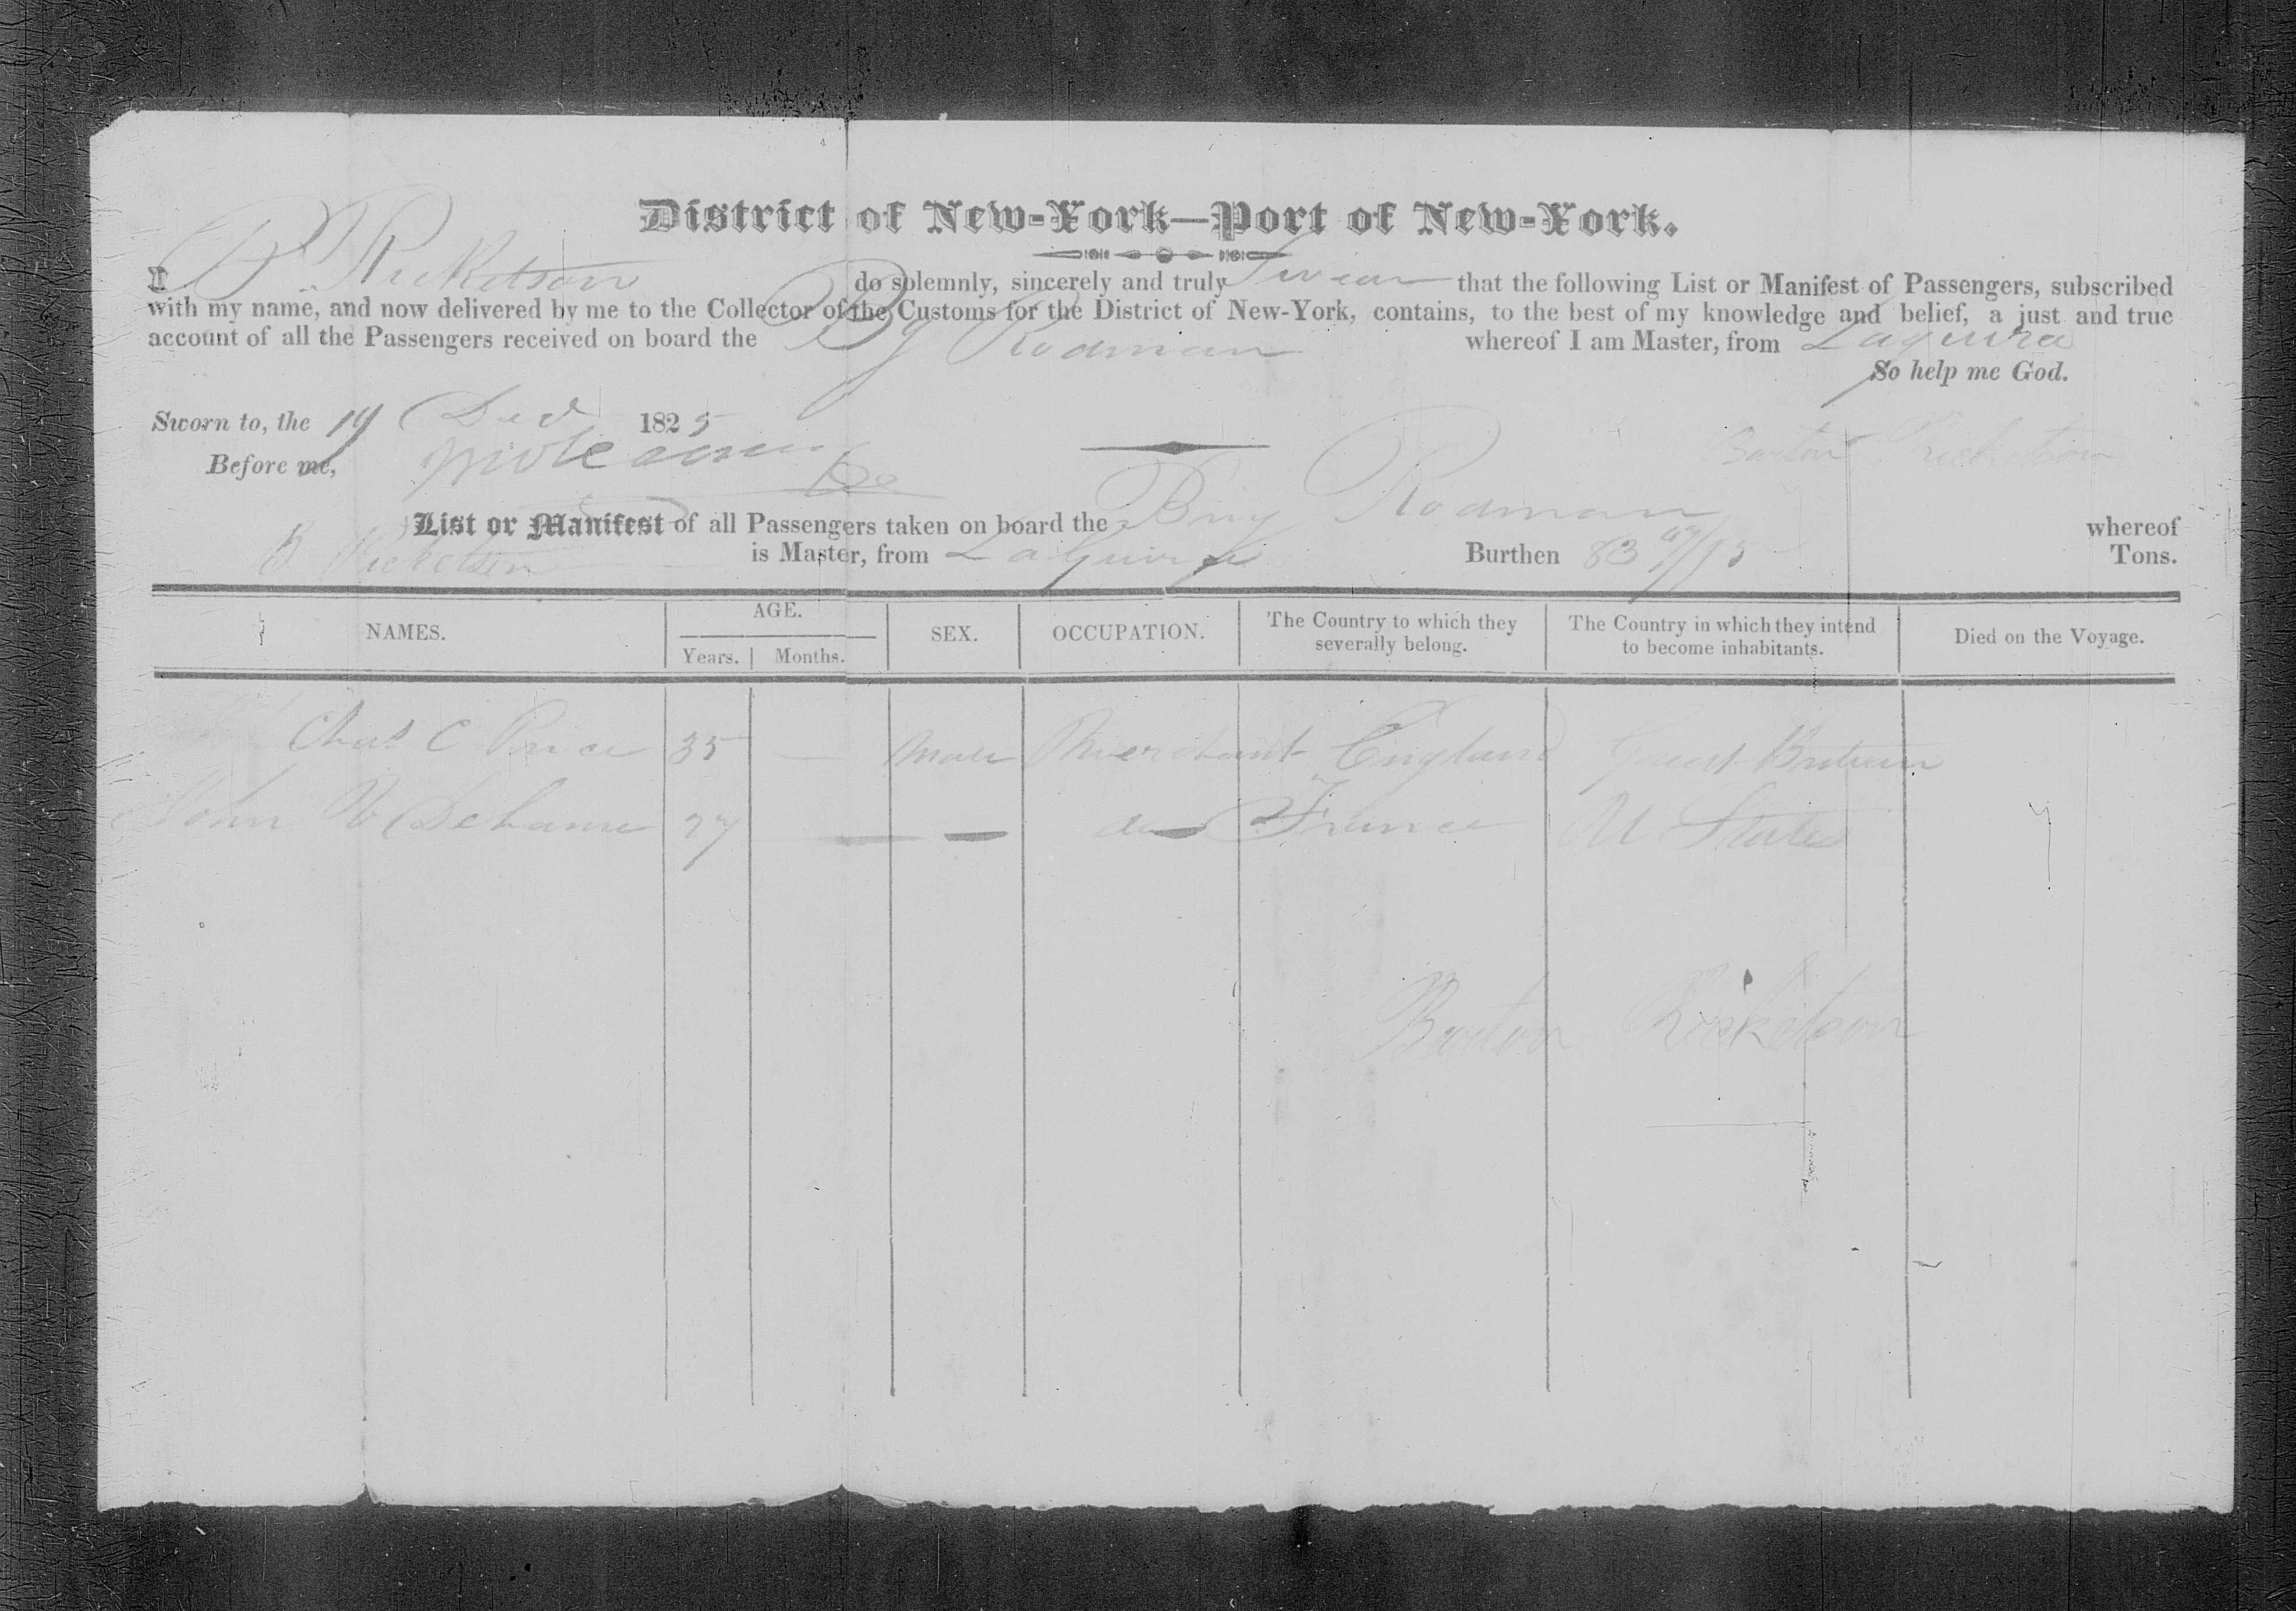 District of New-York—Port of New-York.
I B Ricketson do solemnly, sincerely and truly Swear that the following List or Manifest of Passengers, subscribed
with my name, and now delivered by me to the Collector of the Customs for the District of New-York, contains, to the best of my knowledge and belief, a just and true
account of all the Passengers received on board the Bg Rodman whereof I am Master, from Laguira
So help me God.
Sworn to, the 19 Decr 1825
Barton Ricketson
Before me,
List or Manifest of all Passengers taken on board the Brig Rodman whereof
B Ricketson is Master, from LaGuira Burthen 83 Tons.
NAMES. AGE. SEX. OCCUPATION. The Country to which they severally belong. The Country in which they intend to become inhabitants. Died on the Voyage.
Years. Months.
Chas C Price 35 — Male Merchant England Great Britain
John 27 — — do France U States
Barton Ricketson